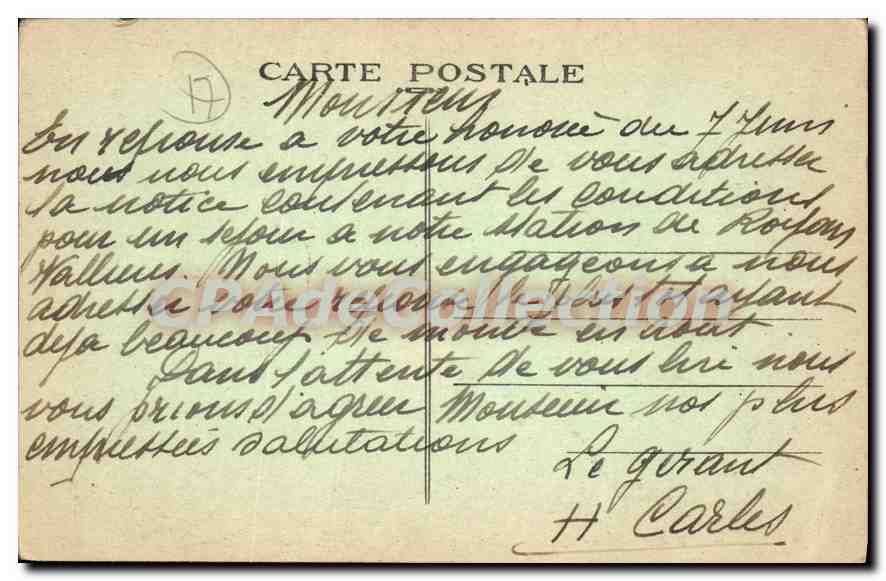 17
CARTE POSTALE
Monsieur
En reponse a votre honoré du 7 Juin
nous nous empressons de vous adresser
la notice contenant les conditions
pour un sejour a notre station de Royans
Walliens. Nous vous engageons a nous
adresser votre reponse le tres tot ayant
deja beaucoup de monde en aout
Dans l'attente de vous lire nous
vous prions d'agreer Monsieur nos plus
empressées salutations
Le gerant
H Carles
CPAdeCollection